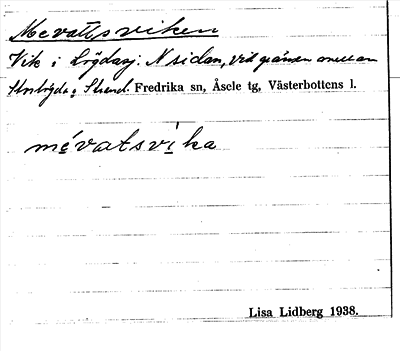 Mevattsviken
Vik i Lögdasj. N sidan, vid gränsen mellan
Storlögda o Strand. Fredrika sn, Åsele tg, Västerbottens l.
mévatsvika
Lisa Lidberg 1938.